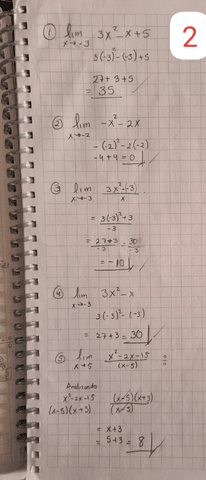 2
① lim x→-3 3x² - x + 5
3(-3)² - (-3) + 5
27 + 3 + 5
= 35
② lim x→-2 -x² - 2x
-(-2)² - 2(-2)
-4 + 4 = 0
③ lim x→-3 3x² - (-3) / x
= 3(-3)² + 3 / -3
= 27 + 3 / -3 = 30 / -3
= -10
④ lim x→-3 3x² - x
3(-3)² - (-3)
= 27 + 3 = 30
⑤ lim x→5 x² - 2x - 15 / (x - 5)
x² - 2x - 15
(x - 5)(x + 3)
(x - 5)(x + 3) / (x - 5)
= x + 3
= 5 + 3 = 8